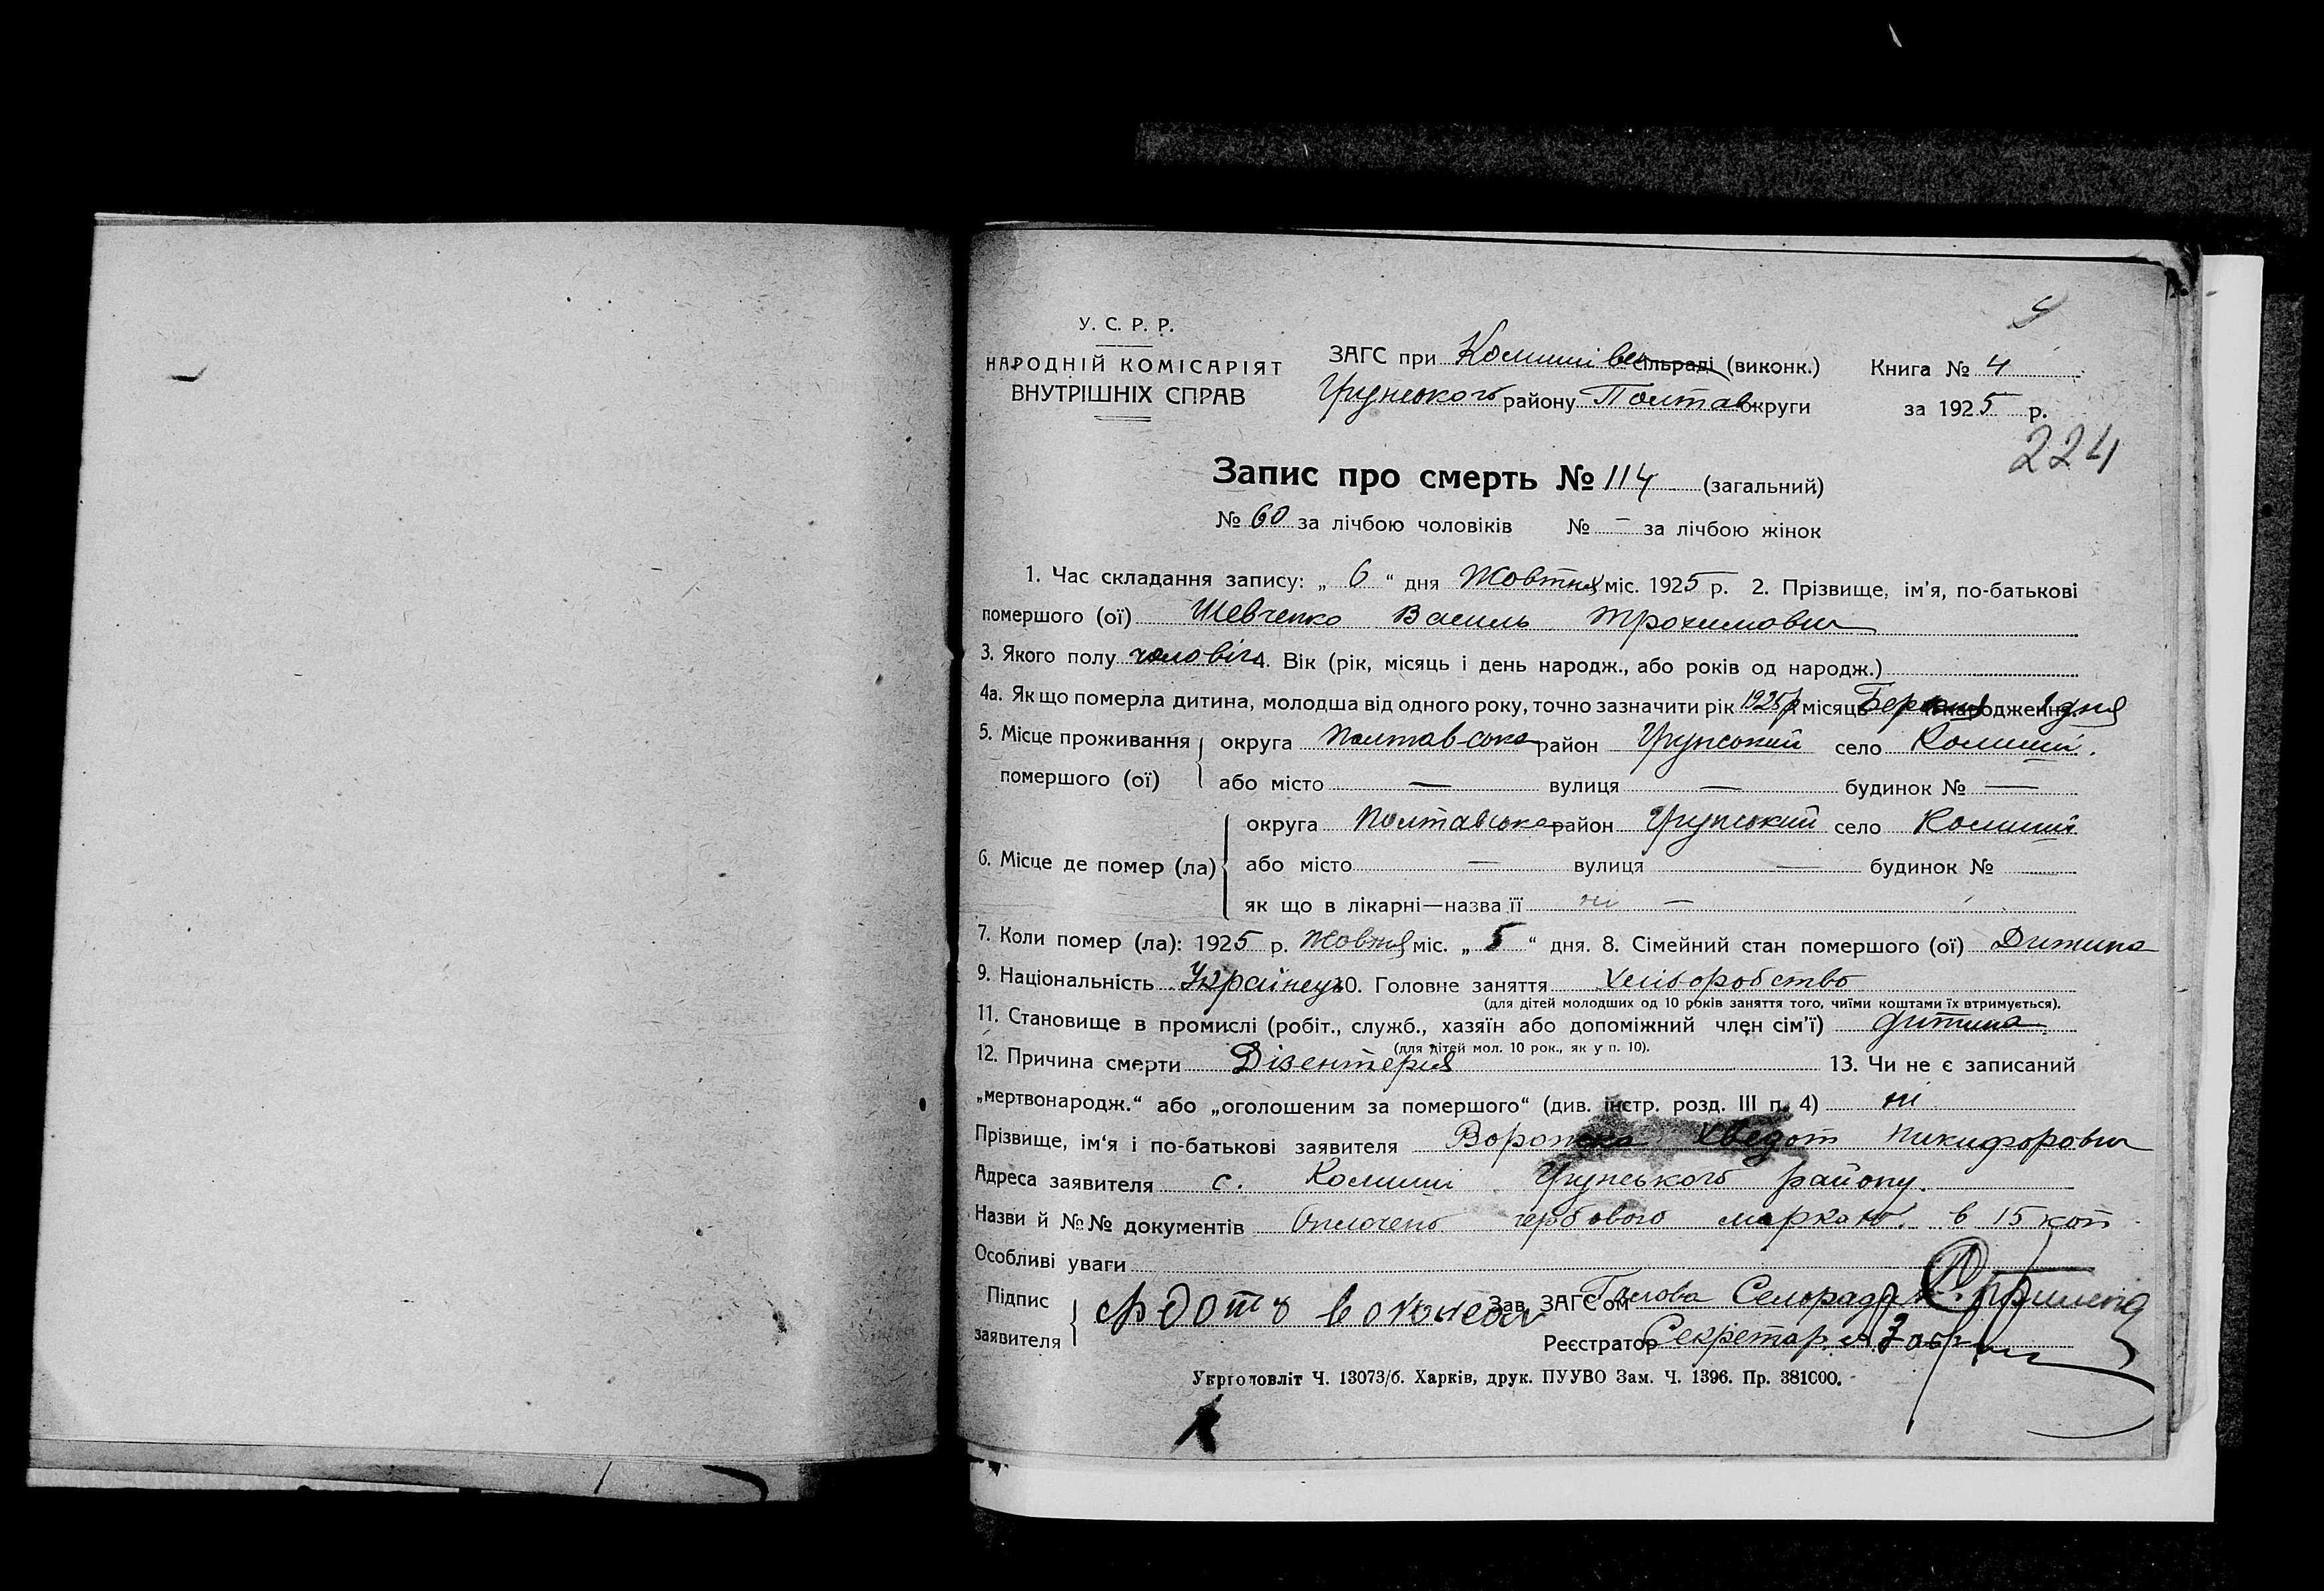 У. С. Р. Р.
НАРОДНІЙ КОМІСАРІЯТ
ВНУТРІШНІХ СПРАВ
ЗАГС при Комиші сільраді (виконк.)
Грунського району Полтав округи
Книга № 4
за 1925 р.
224
Запис про смерть № 114 (загальний)
№ 60 за лічбою чоловіків № — за лічбою жінок
1. Час складання запису: „ 6 “ дня Жовтня міс. 1925 р. 2. Прізвище, ім'я, по-батькові
помершого (ої) Шевченко Василь Трохимович
3. Якого полу чоловіч 4. Вік (рік, місяць і день народж., або років од народж.)
4а. Як що померла дитина, молодша від одного року, точно зазначити рік 1925 р місяць народження дня
5. Місце проживання помершого (ої) округа Полтавська район Грунський село Комиші.
або місто — вулиця — будинок № —
6. Місце де помер (ла) округа Полтавська район Грунський село Комиші
або місто — вулиця — будинок №
як що в лікарні—назва її ні —
7. Коли помер (ла): 1925 р. Жовня міс. „ 5 “ дня. 8. Сімейний стан помершого (ої) Дитина
9. Національність Українець 10. Головне заняття хліборобство
(для дітей молодших од 10 років заняття того, чиїми коштами їх втримується).
11. Становище в промислі (робіт., служб., хазяїн або допоміжний член сім'ї) дитина
(для дітей мол. 10 рок., як у п. 10).
12. Причина смерти Дізентерія 13. Чи не є записаний
„мертвонародж.“ або „оголошеним за помершого“ (див. інстр. розд. III п. 4) ні
Прізвище, ім'я і по-батькові заявителя Хведот Никифорович
Адреса заявителя с. Комиші Грунського району.
Назви й №№ документів Оплочено гербового маркою. в 15 коп
Особливі уваги
Підпис заявителя
Зав. ЗАГС'ом Голова Сельради
Реєстратор Секретар
Укрголовліт Ч. 13073/б. Харків, друк. ПУУВО Зам. Ч. 1396. Пр. 381000.